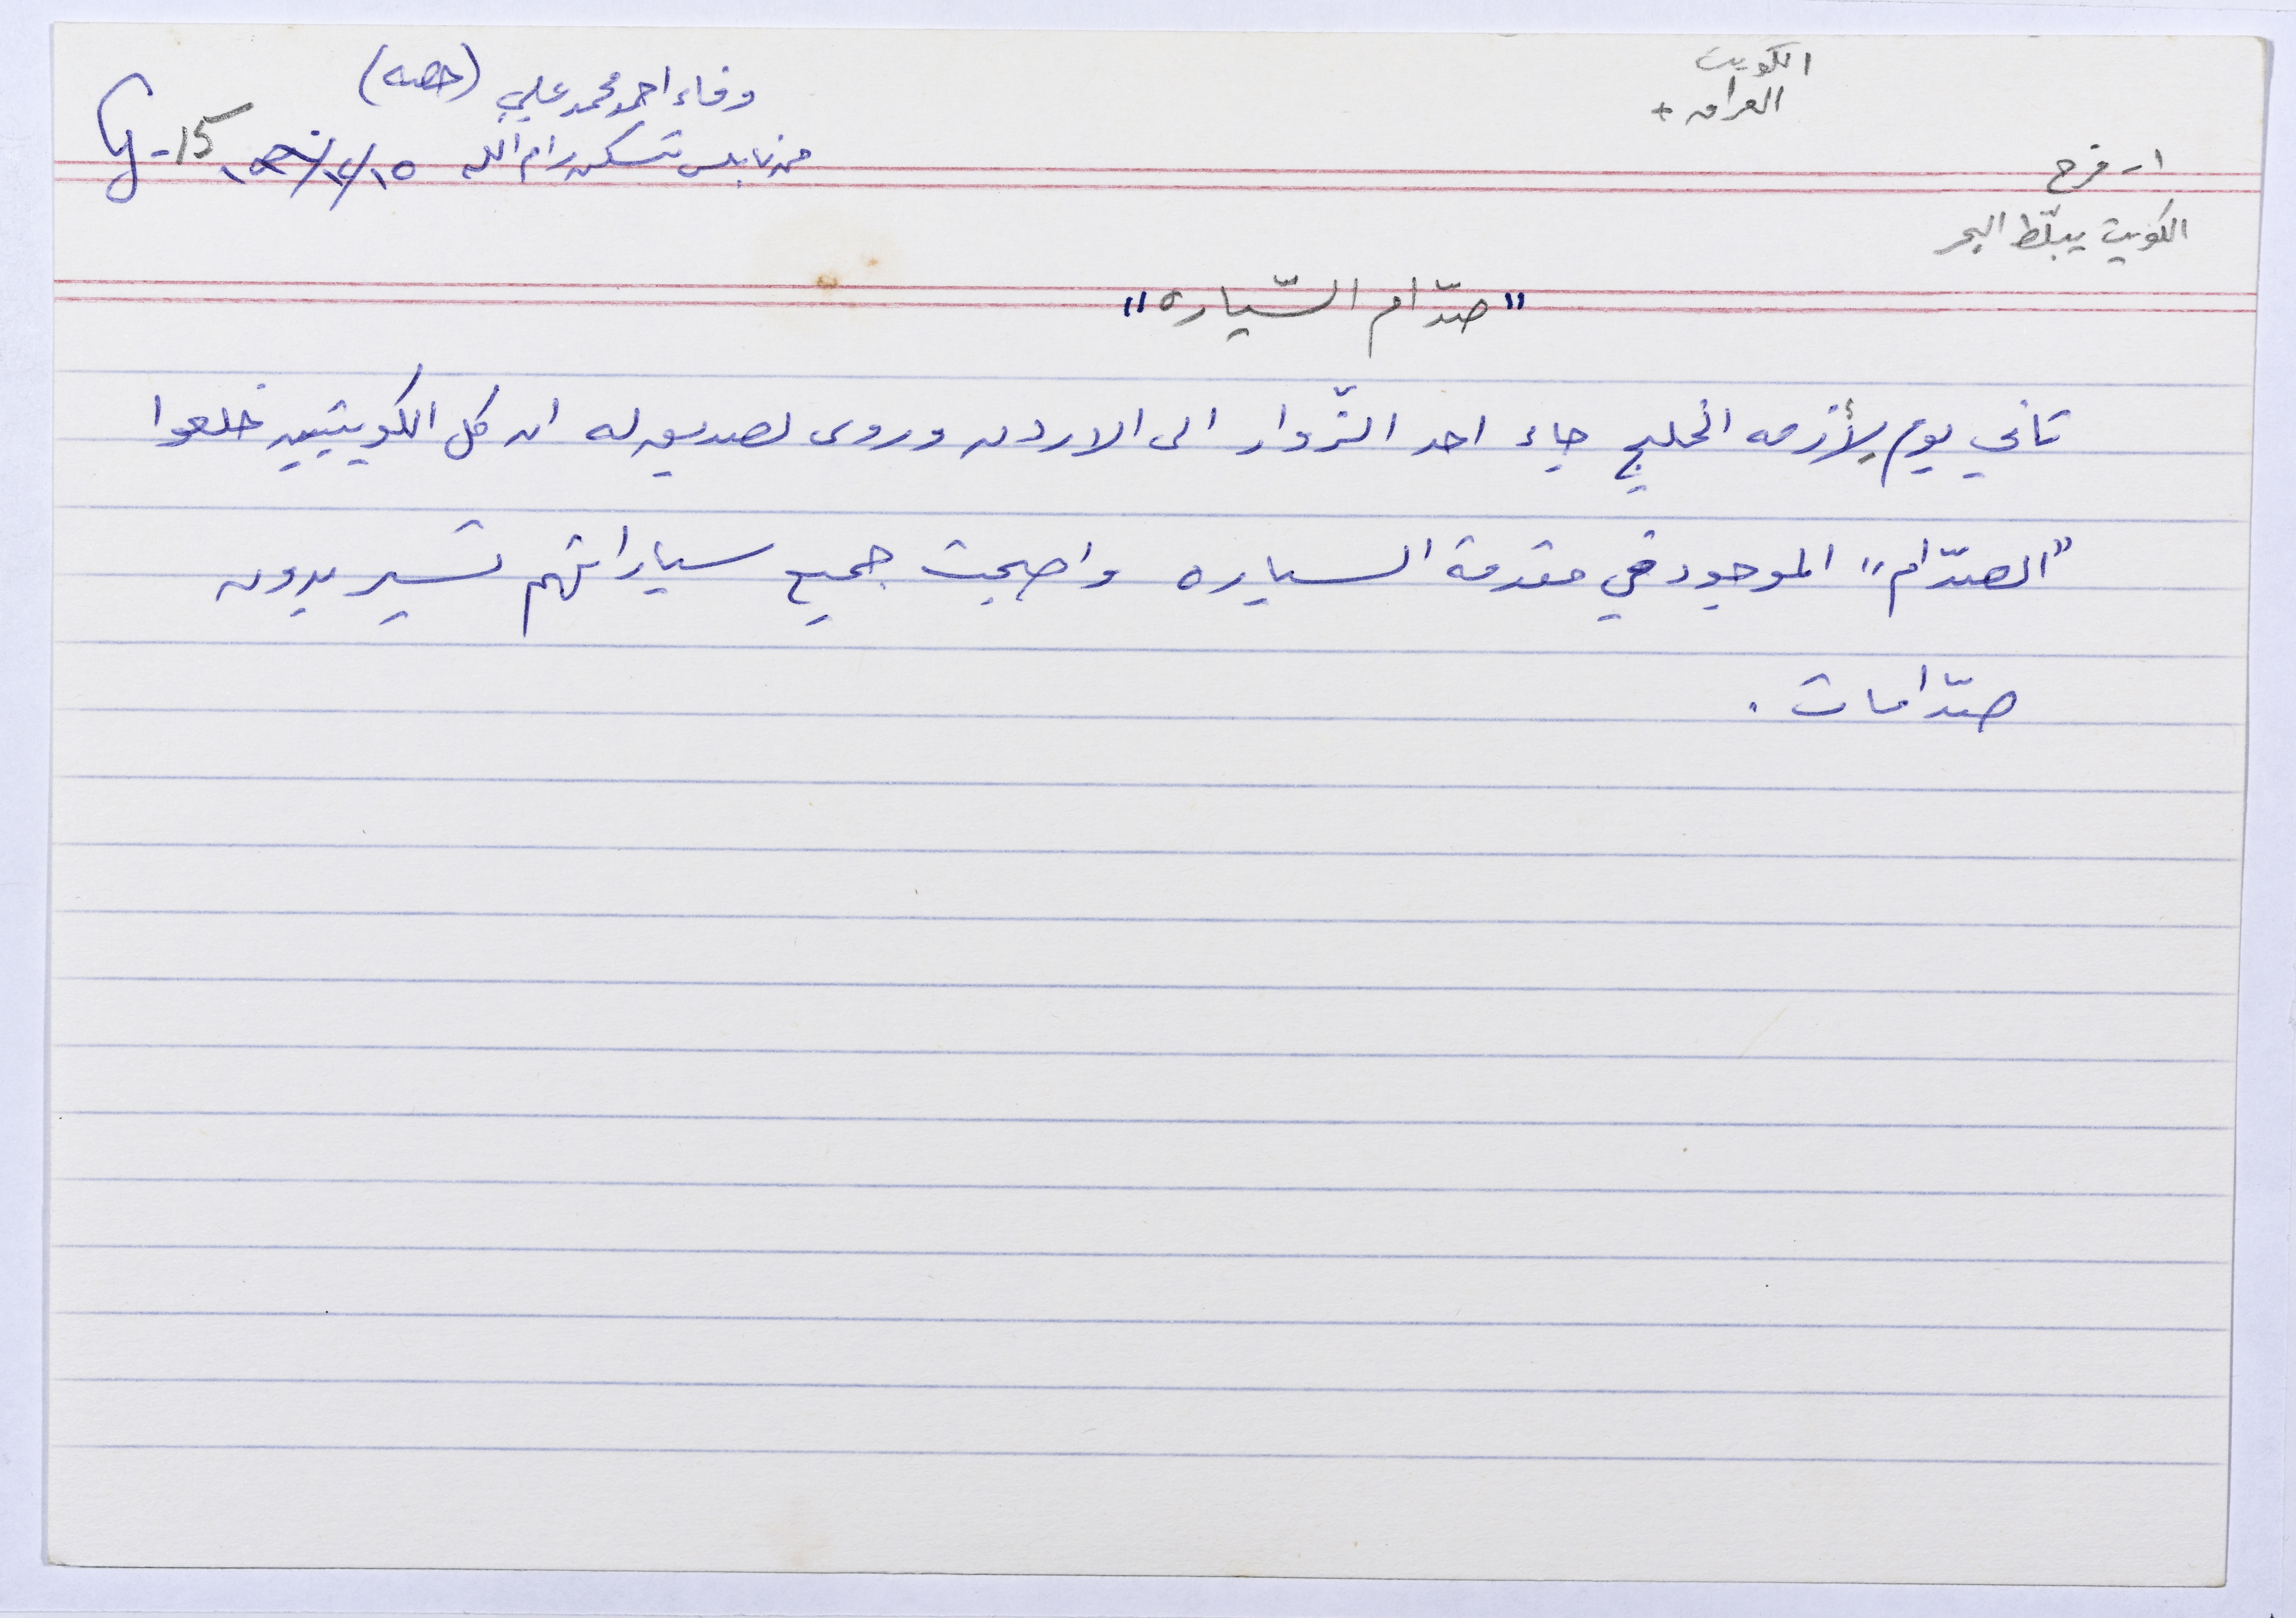 الكويت
العراق +
وفاء احمد محمد علي (حصه)
من نابلس تسكن رام الله
G-15
١- فرح
الكويت يبلّط البحر
"صدّام السّياره"
تاني يوم لأزمه الخليج جاء احد الزّوار الى الاردن وروى لصديق له ان كل الكويتيين خلعوا
"الصدّام" الموجود في مقدمة السياره واصبحت جميع سياراتهم تسير بدون
صدّامات .